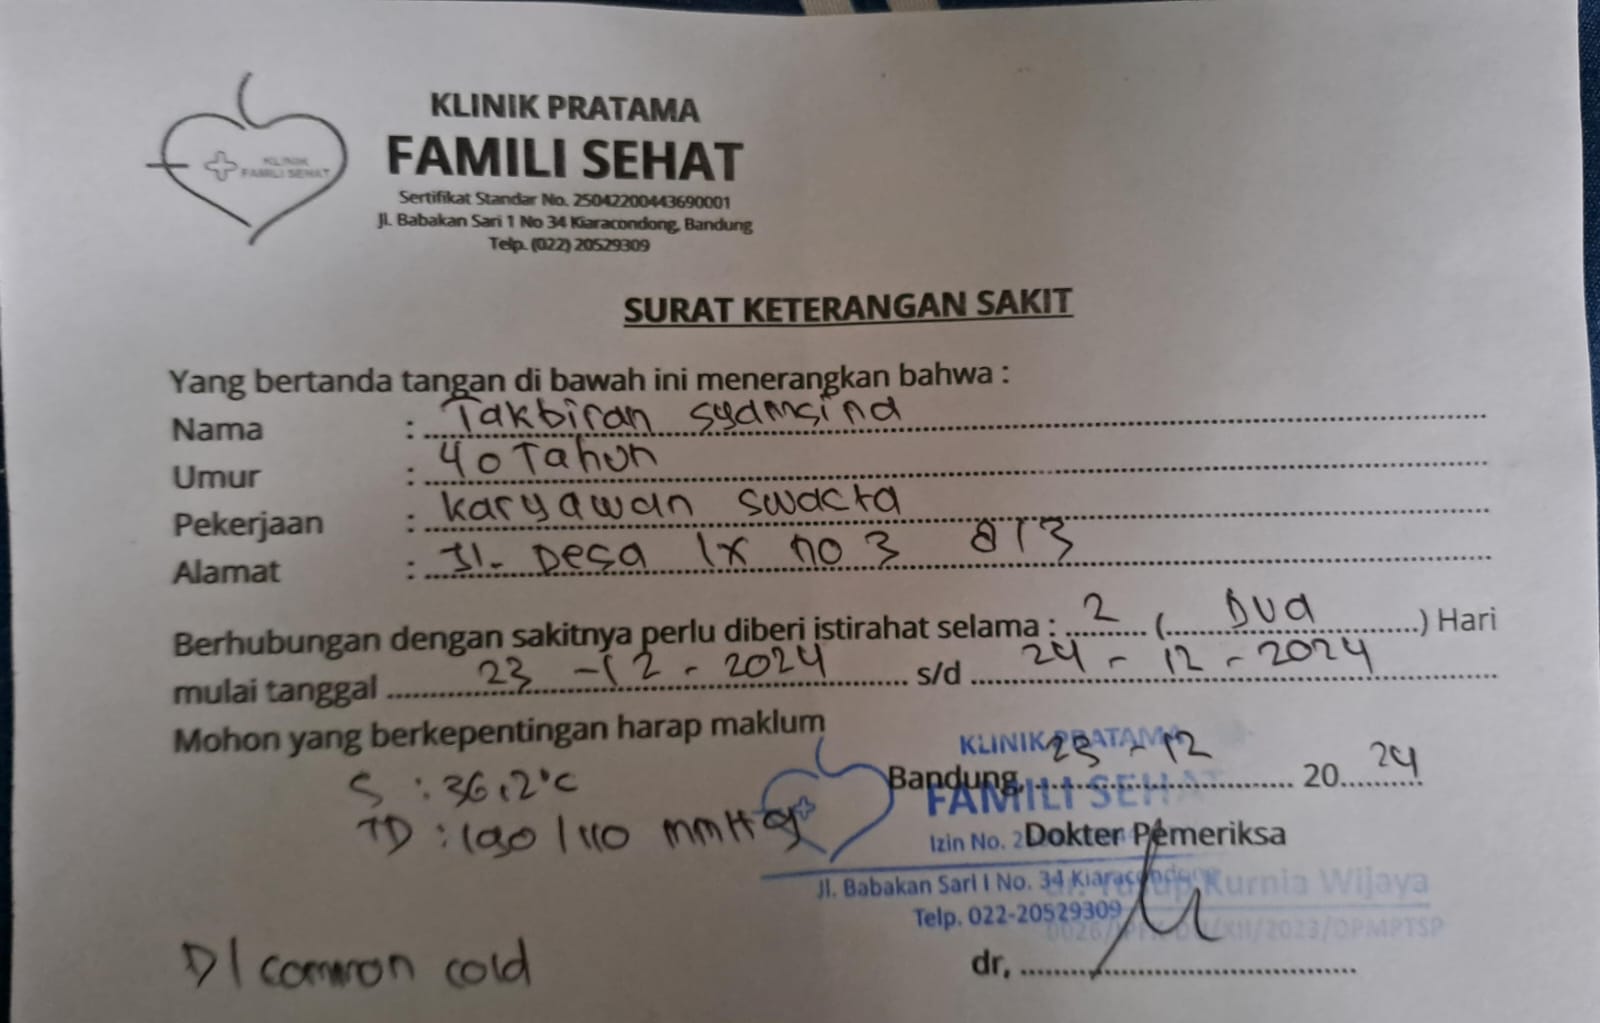 KLINIK
FAMILI SEHAT
KLINIK PRATAMA
FAMILI SEHAT
Sertifikat Standar No. 25042200443690001
Jl. Babakan Sari 1 No 34 Kiaracondong, Bandung
Telp. (022) 20529309
SURAT KETERANGAN SAKIT
Yang bertanda tangan di bawah ini menerangkan bahwa :
Nama : Takbiran Syamsina
Umur : 40 Tahun
Pekerjaan : Karyawan Swacta
Alamat : Jl. Desa IX no 3
Berhubungan dengan sakitnya perlu diberi istirahat selama : 2 ( Dua ) Hari
mulai tanggal 23 - 12 - 2024 s/d 24 - 12 - 2024
Mohon yang berkepentingan harap maklum
S : 36,2°C
TD : /110 mmHg
KLINIK PRATAMA
Bandung, 23 - 12 20 24
FAMILI SEHAT
Izin No. 2
Dokter Pemeriksa
Jl. Babakan Sari I No. 34 Kiaracondong
Kurnia Wijaya
Telp. 022-20529309
/XII/2023/DPMPTSP
dr,
D/ common cold